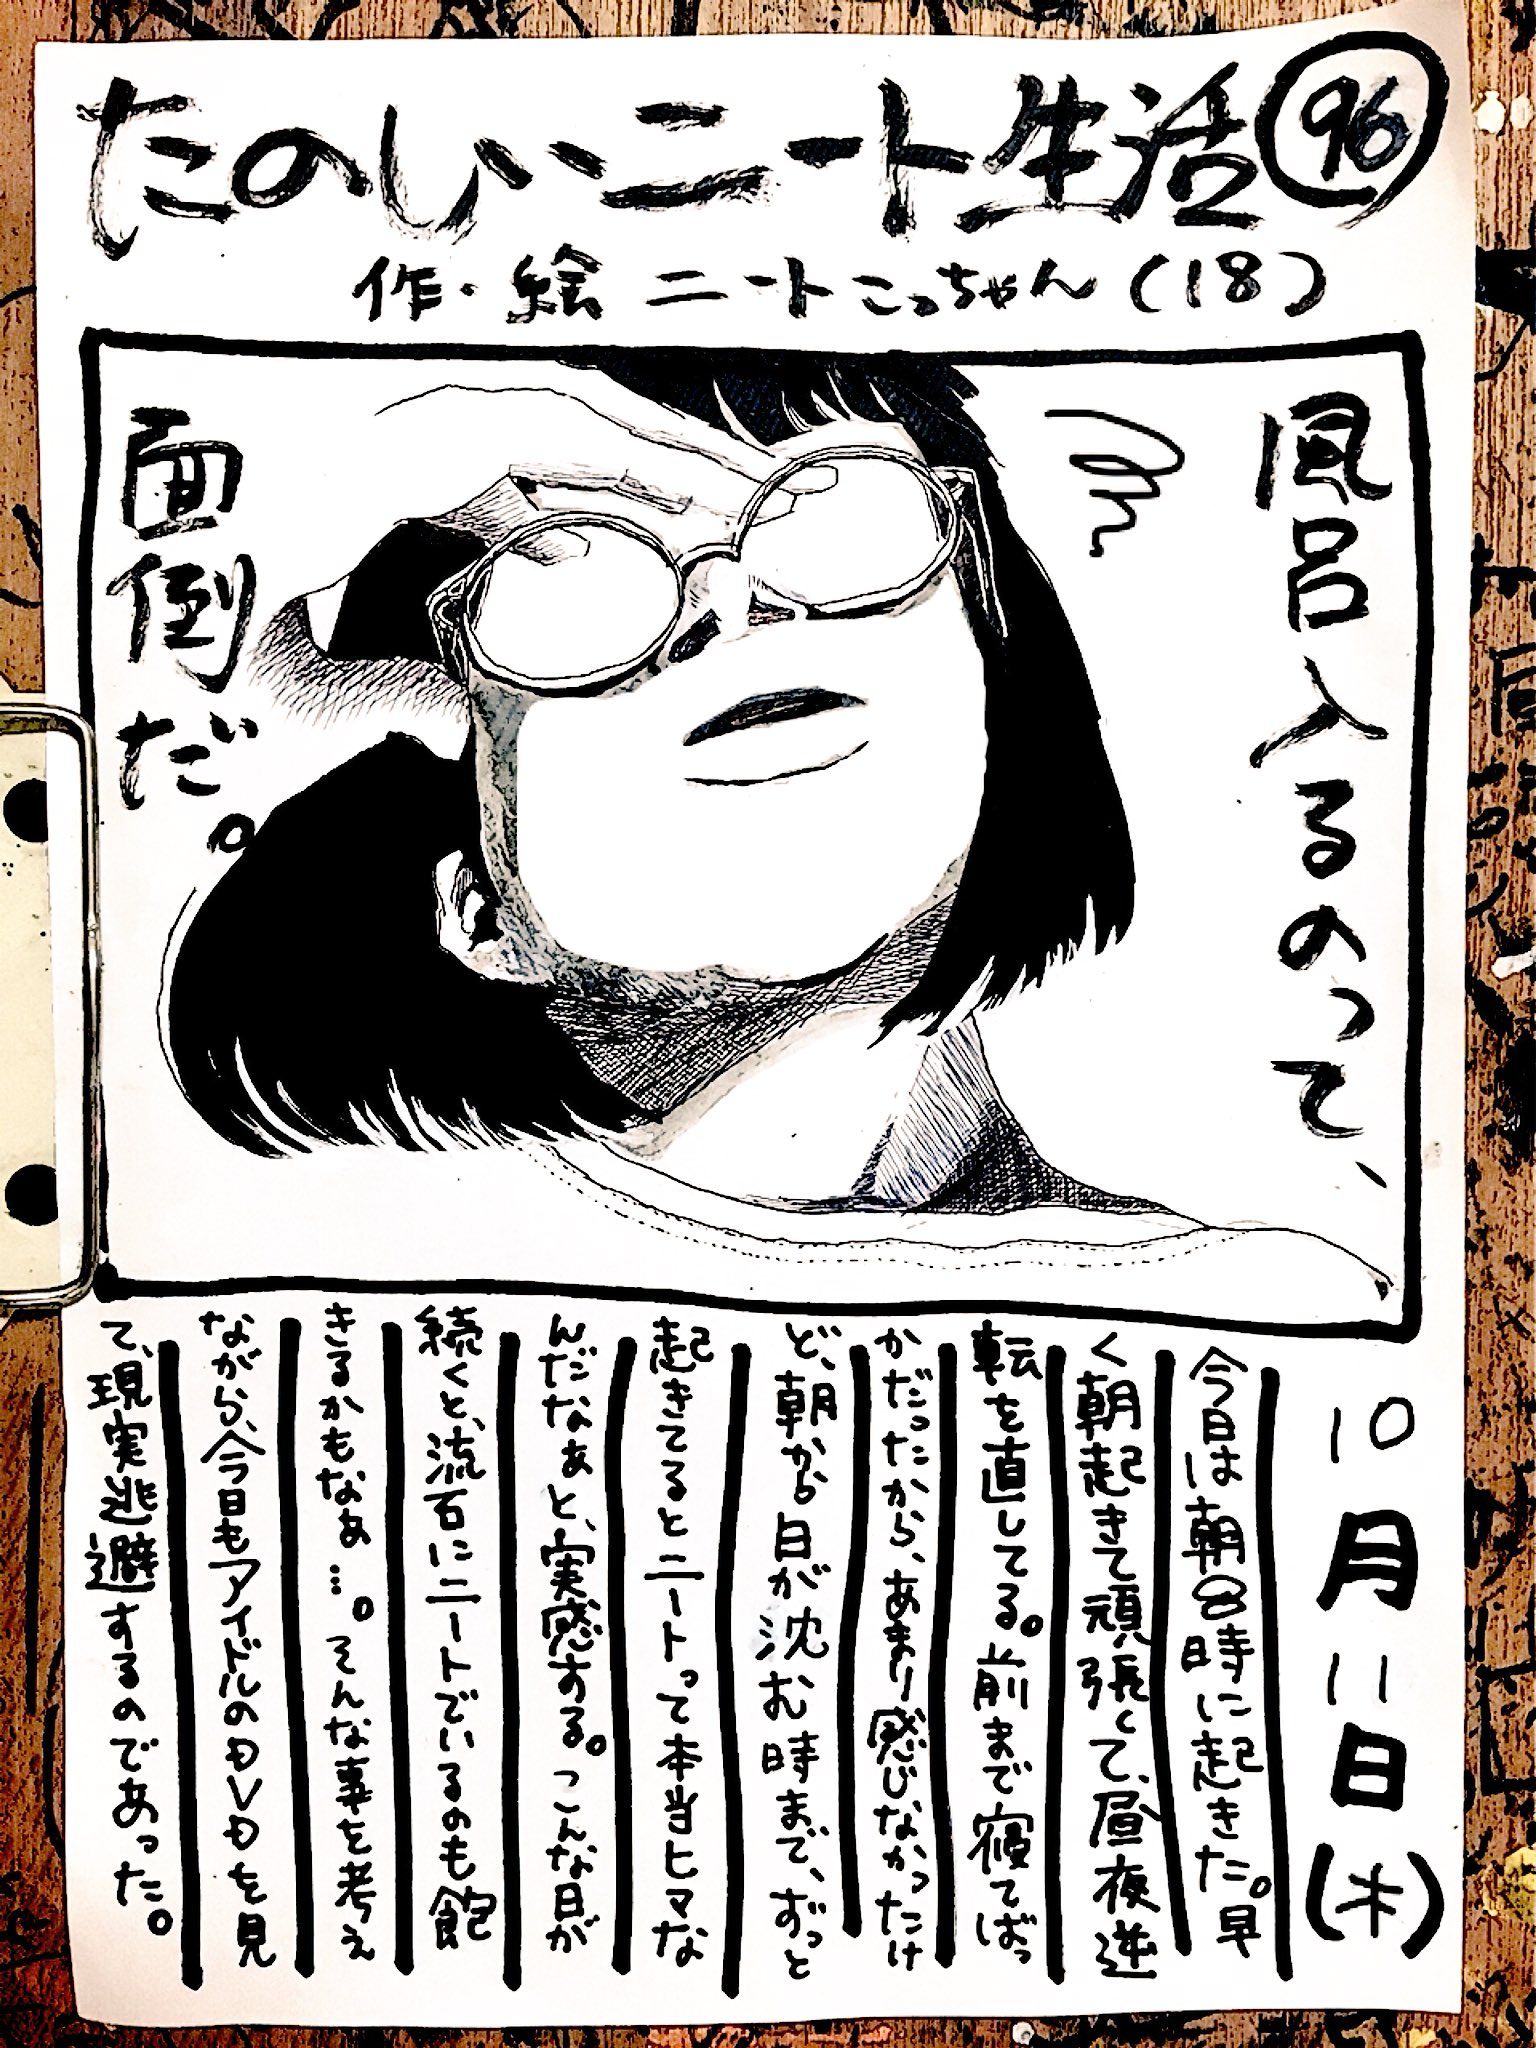 たのしいニート生活 96
作・絵 ニートこっちゃん(18)
風呂入るのって、
面倒だ。
10月11日(木)
今日は朝8時に起きた。早
く朝起きて頑張って、昼夜逆
転を直してる。前まで寝てばっ
かだったから、あまり感じなかったけ
ど、朝から日が沈む時まで、ずっと
起きてるとニートって本当ヒマな
んだなぁと、実感する。こんな日が
続くと、流石にニートでいるのも飽
きるかもなぁ…。そんな事を考え
ながら、今日もアイドルのDVDを見
て、現実逃避するのであった。